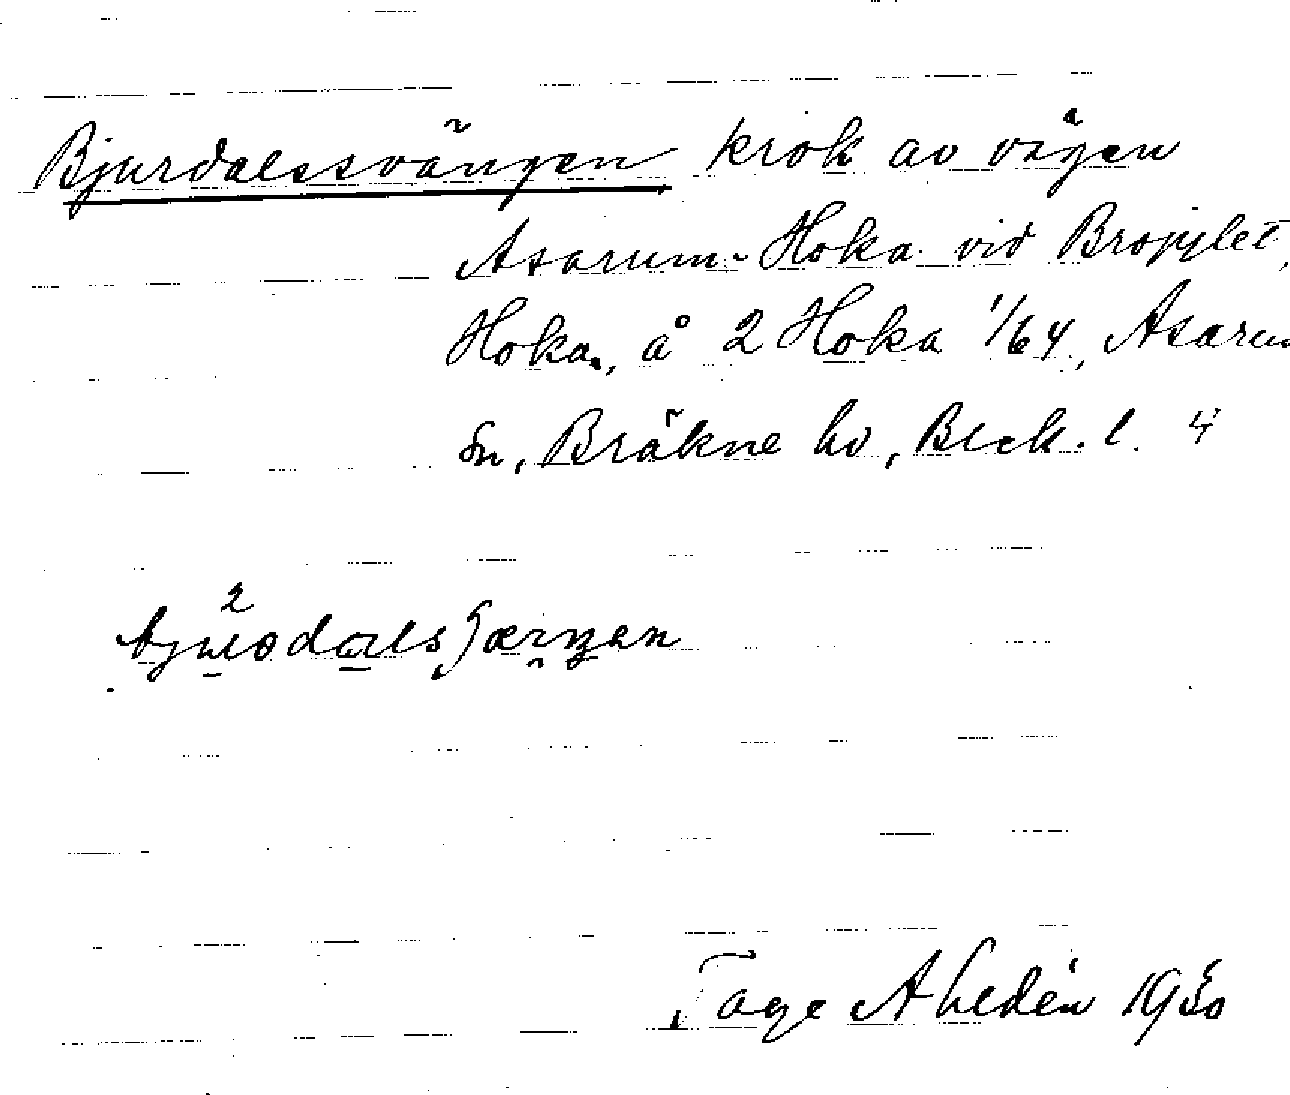 Bjurdalssvängen krok av vägen
Asarum-Hoka vid Brohylet,
Hoka, å 2 Hoka 1/64, Asarum
sn, Bräkne hd, Blek. l. 4
Tage Ahldén 1950